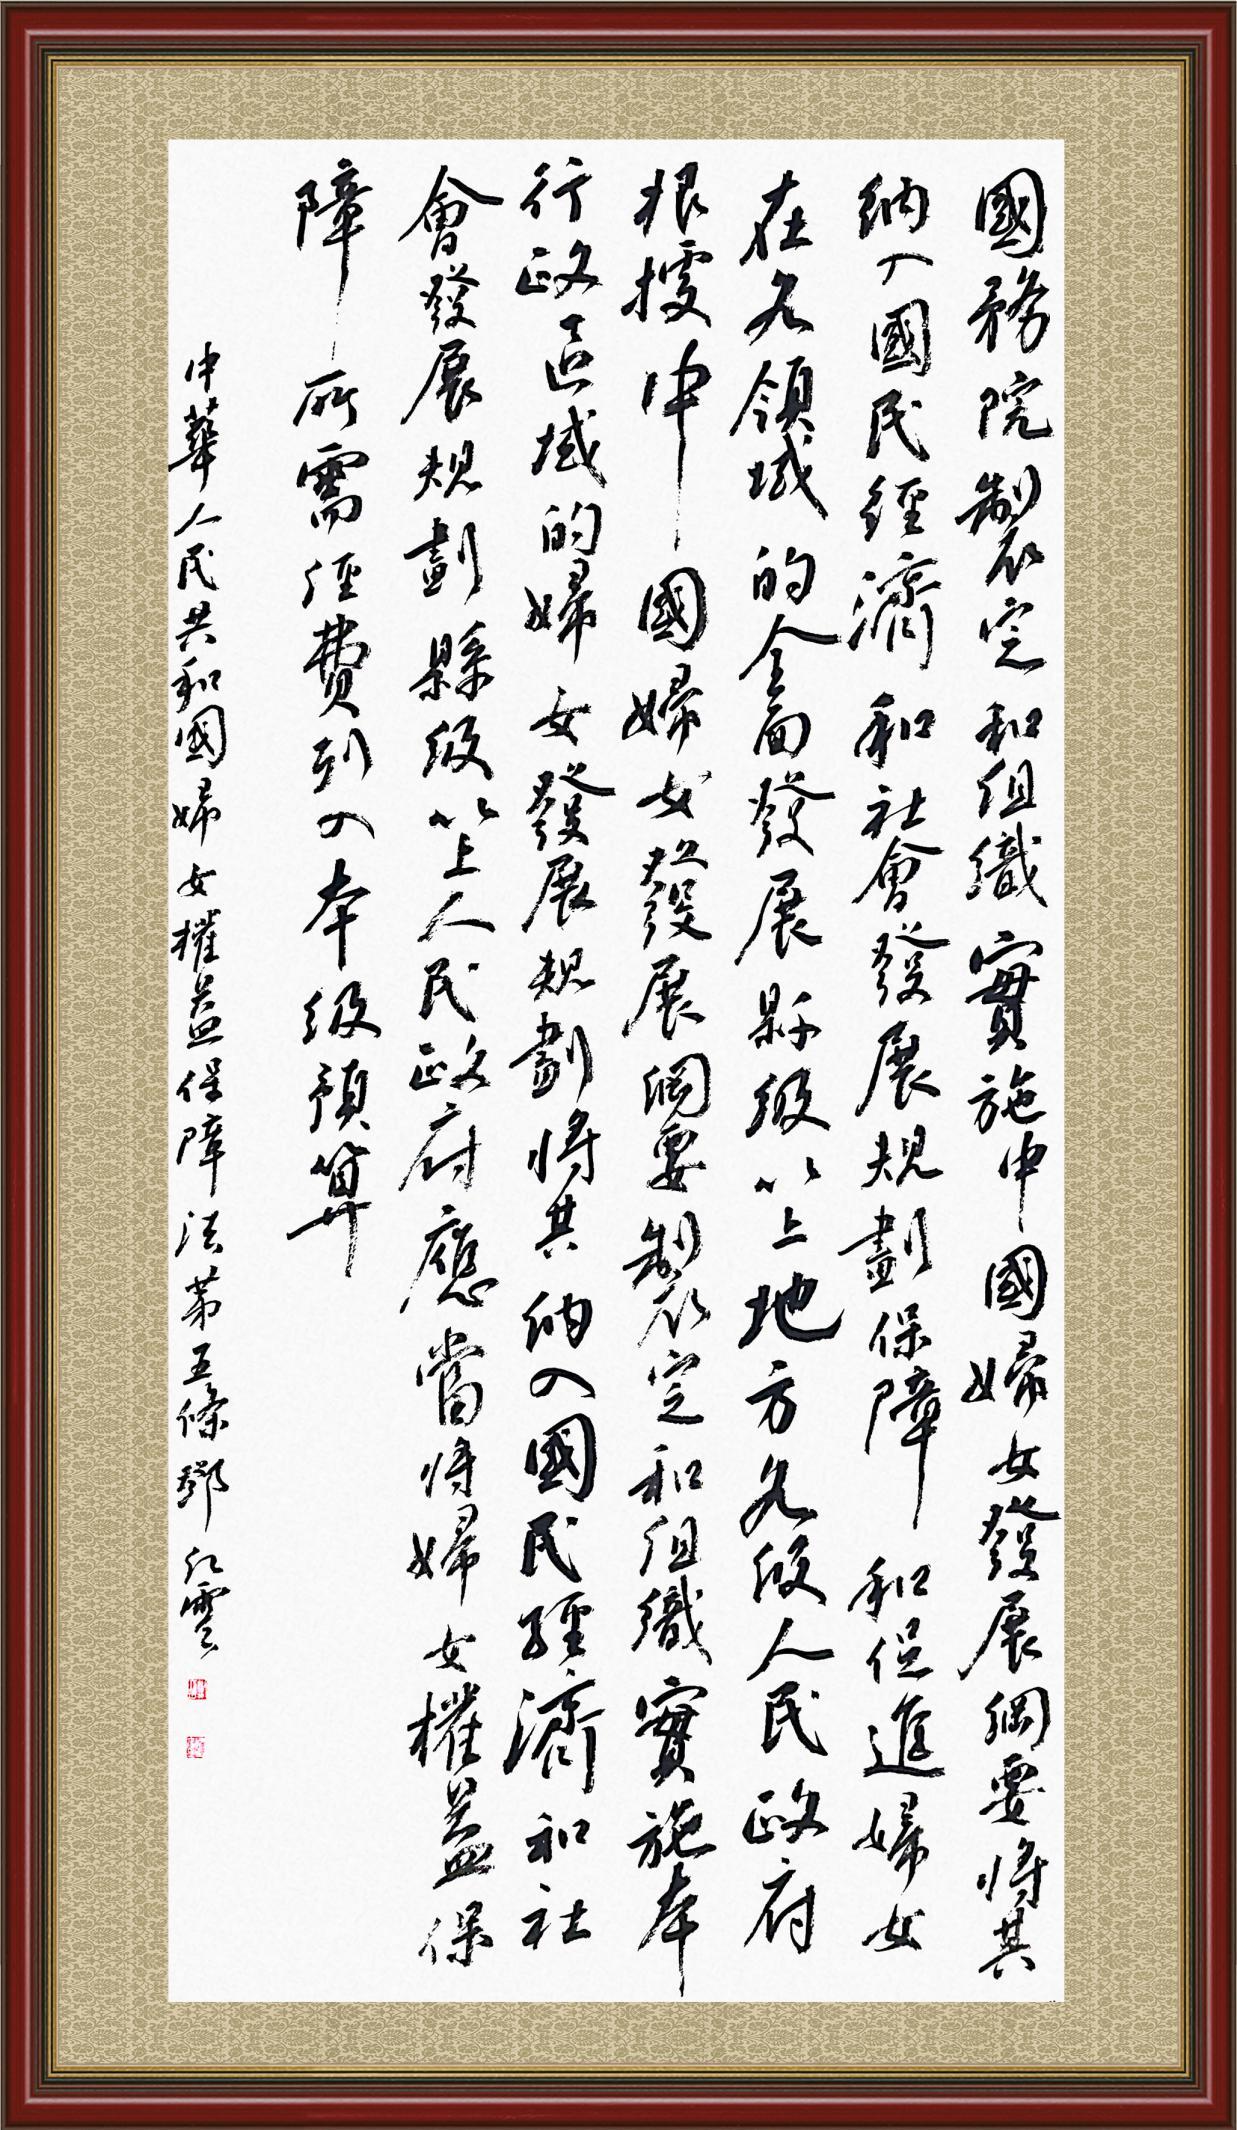 國務院製定和組織實施中國婦女發展綱要將其
納入國民經濟和社會發展規劃保障和促進婦女
在各領域的全面發展縣級以上地方各級人民政府
根據中國婦女發展綱要製定和組織實施本
行政區域的婦女發展規劃將其納入國民經濟和社
會發展規劃縣級以上人民政府應當將婦女權益保
障所需經費列入本級預算
中華人民共和國婦女權益保障法第五條鄧紅雲